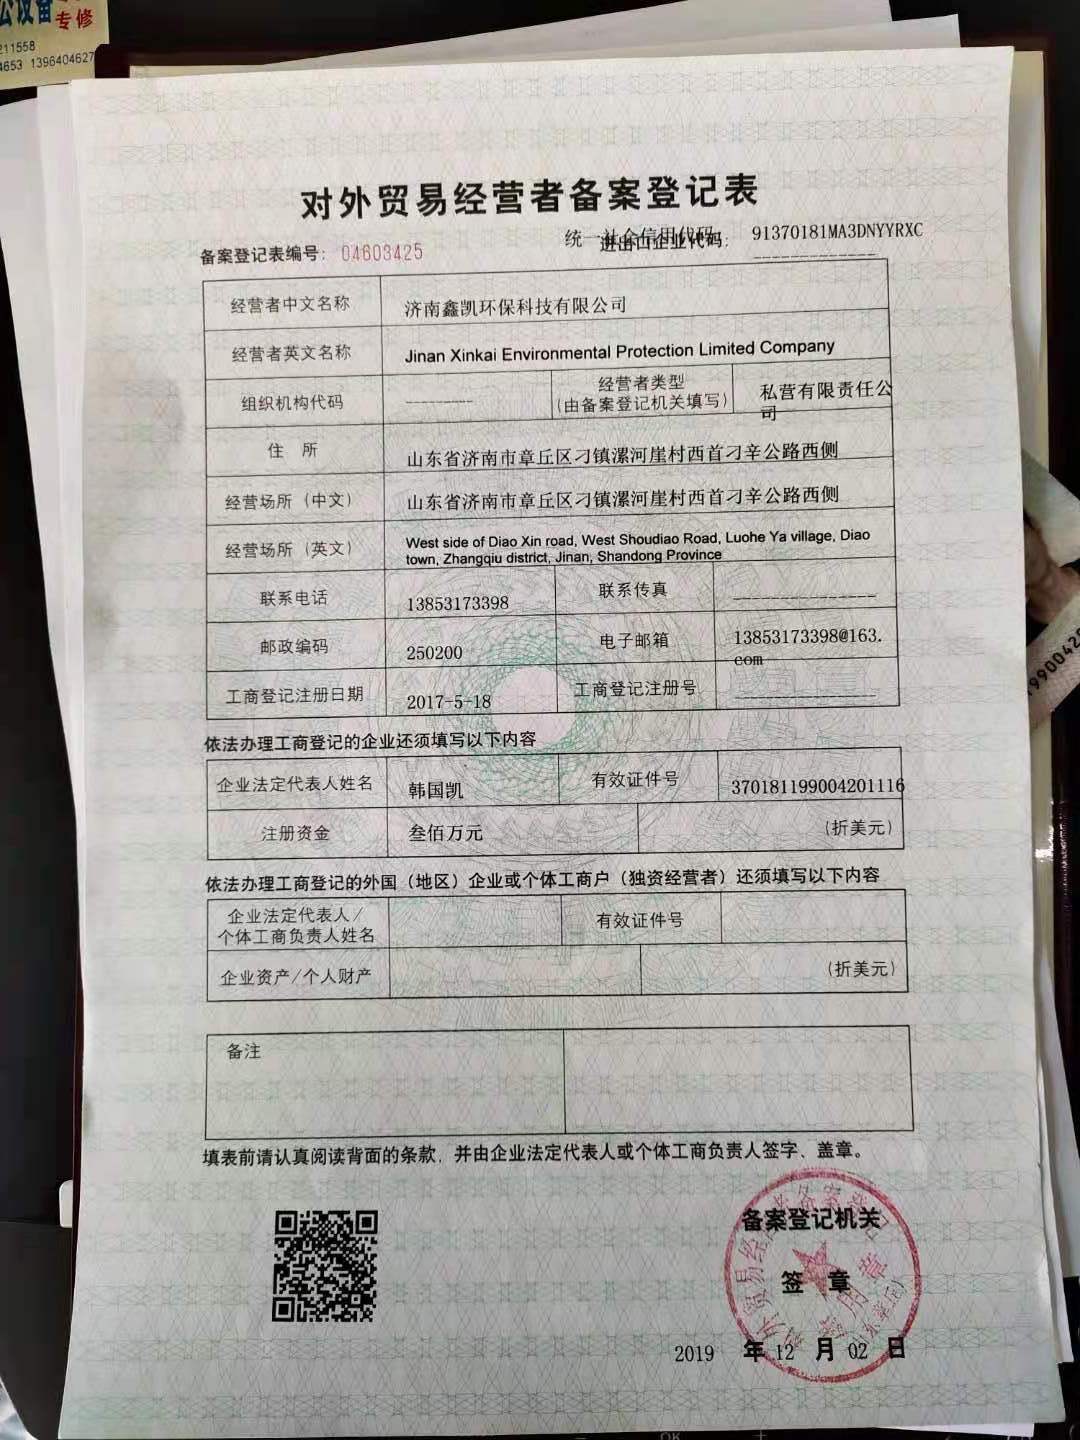 公设备
专修
211558
4653 1396404627
对外贸易经营者备案登记表
统一社会信用代码:
进出口企业代码:
91370181MA3DNYYRXC
备案登记表编号: 04603425
经营者中文名称 济南鑫凯环保科技有限公司
经营者英文名称 Jinan Xinkai Environmental Protection Limited Company
组织机构代码 经营者类型 (由备案登记机关填写) 私营有限责任公司
住 所 山东省济南市章丘区刁镇漯河崖村西首刁辛公路西侧
经营场所（中文） 山东省济南市章丘区刁镇漯河崖村西首刁辛公路西侧
经营场所（英文） West side of Diao Xin road, West Shoudiao Road, Luohe Ya village, Diao
town, Zhangqiu district, Jinan, Shandong Province
联系电话 13853173398 联系传真
邮政编码 250200 电子邮箱 13853173398@163.com
工商登记注册日期 2017-5-18 工商登记注册号
依法办理工商登记的企业还须填写以下内容
企业法定代表人姓名 韩国凯 有效证件号 370181199004201116
注册资金 叁佰万元 (折美元)
依法办理工商登记的外国（地区）企业或个体工商户（独资经营者）还须填写以下内容
企业法定代表人/
个体工商负责人姓名 有效证件号
企业资产/个人财产 (折美元)
备注
填表前请认真阅读背面的条款，并由企业法定代表人或个体工商负责人签字、盖章。
备案登记机关
签 章
2019 年 12 月 02 日